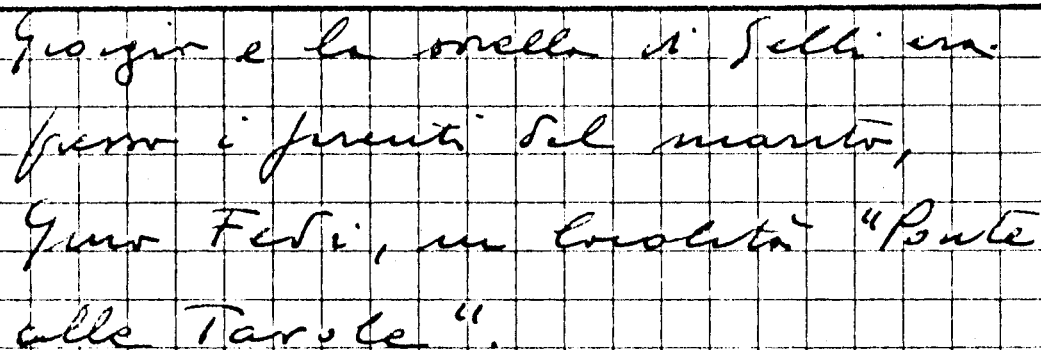 Giorgio e la sorella di Gelli era
presso i parenti del marito,
Gino Fedi, in località "Ponte
alle Tavole".